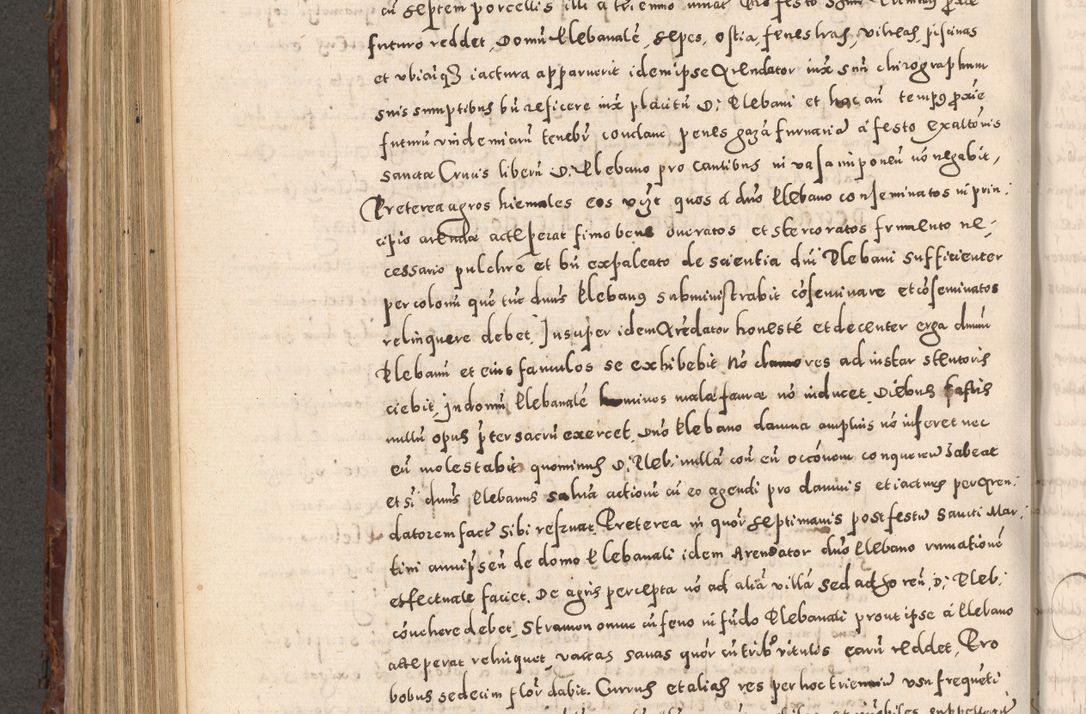 cū septem porcellis illi a triennio
futuro reddet, Domū Plebanalē, sepes, ostia, fenestras, vitreas, piscinas
et vbicūq3 iactura apparuerit idem ipse Arendator iux suū chirographum
suis sumptibus bn̄ reficere iux placitū D: Plebani et hoc an̄ tempꝯ proxie
futurū vindemiarū tenebr conclaue penes gazā furnariā a festo Exaltōnis
sanctæ Crucis liberū D: Plebano pro cantibus ni vasa imponen̄ nō negabit,
Preterea agros hiemales eos vizt quos a dn̄o Plebano conseminatos in prin:
cipio arendæ acceperat fimo bene oneratos et stercoratos frumento ne:
cessario pulchrè et bn̄ expaleato de scientia dn̄i Plebani sufficienter
per colonū quē tūc dn̄us Plebanus subministrabit cōseminare et cōseminatos
relinquere debet. Insuper idem Arēdator honestè et decenter erga dn̄um
Plebanū et eius famulos se exhibebit. Nō clamores ad instar stentoris
ciebit, in domū Plebanalē homines malæ famæ nō inducet. Diebus festis
nullū opus p̄ter sacrū exercet. Dn̄o Plebano damna amplius nō inferet nec
eū molestabit quominus D: Pleb: nullā coñ eū occōnem conquerēn habeat
et si dn̄us Plebanus salua actione cū eo agendi pro damnis et iacturis per Aren:
datorem fact sibi reseruat. Preterea in quor septimanis post festū Sancti Mar:
tini anni p̄sen̄ de domo Plebanali idem Arendator dn̄o Plebano rumationē
effectuale faciet. De agris percepta nō ad aliā villā sed ad horren̄ D: Pleb:
cōuehere debet. Stramen omne cū feno in fūdo Plebanali prout ipse á Plebano
acceperat relinquet, vaccas sanas quor cū tribꝯ vitulis earū reddet, Pro
bobus sedecim flor dabit. Currus et alias res per hoc triennium vsu frequēti